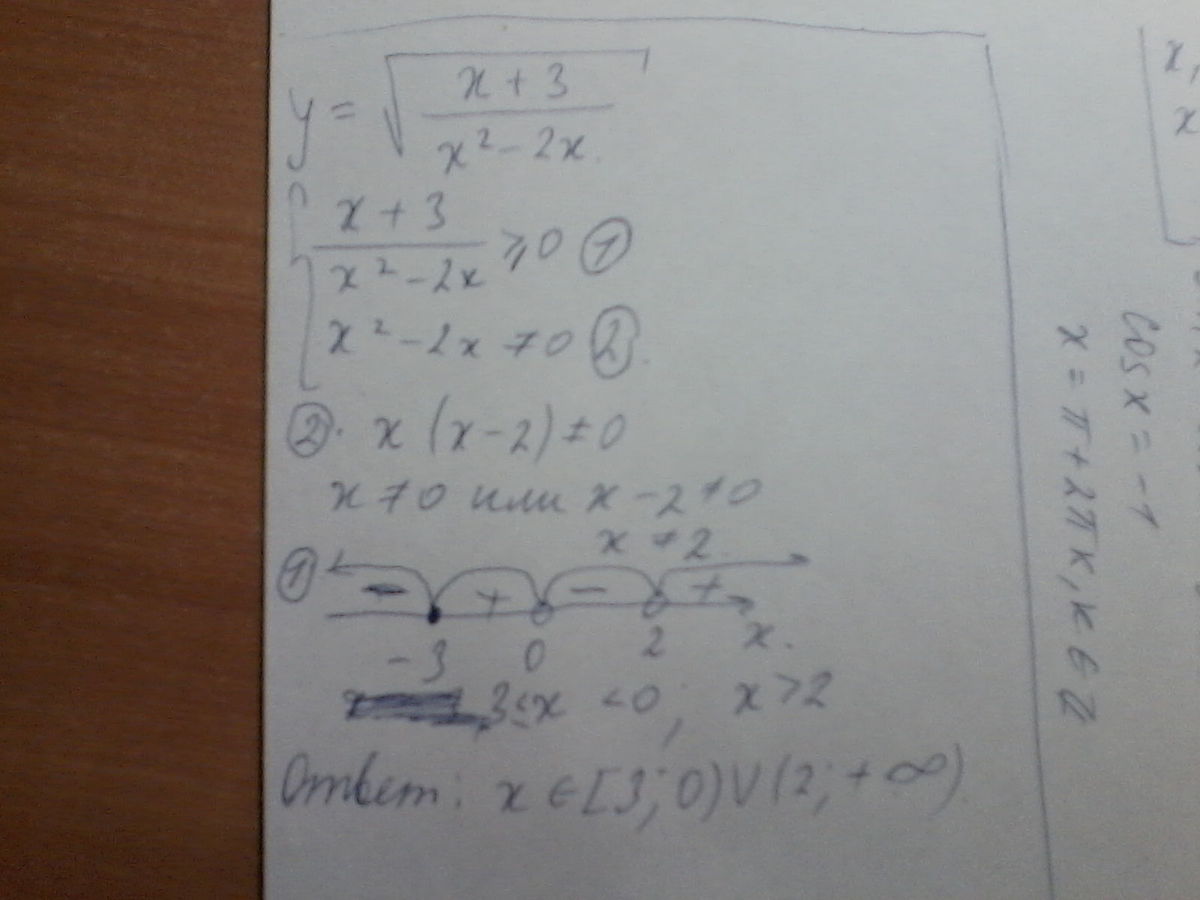 y = √((x + 3)/(x² - 2x))
(x + 3)/(x² - 2x) ⩾ 0 ①
x² - 2x ≠ 0 ②
②. x (x - 2) ≠ 0
x ≠ 0 или x - 2 ≠ 0
x ≠ 2
① - + - +
-3 0 2 x.
3 ≤ x < 0; x > 2
Ответ: x ∈ [3; 0) ∪ (2; +∞)
cos x = -1
x = π + 2πк, к ∈ Z
x,
x